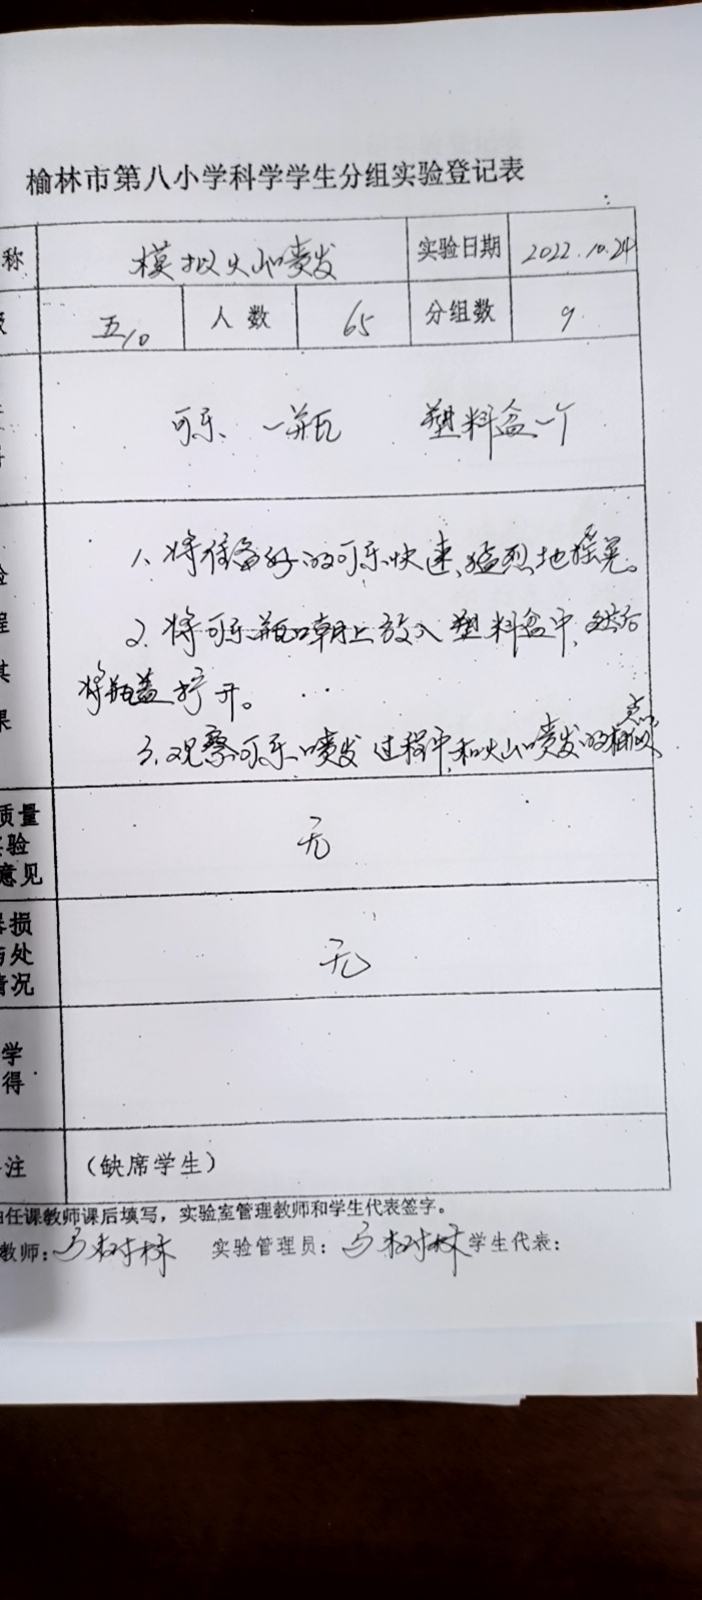 榆林市第八小学科学学生分组实验登记表
称 模拟火山喷发 实验日期 2022.10.24
五/10 人数 65 分组数 9
可乐 一瓶 塑料盒一个
1、将准备好的可乐快速、猛烈地摇晃。
2、将可乐瓶口朝上放入塑料盒中，然后
将瓶盖拧开。
3、观察可乐喷发过程中和火山喷发的相似点
质量
验
意见
无
损
处
情况
无
学
得
注 （缺席学生）
任课教师课后填写，实验室管理教师和学生代表签字。
教师：马树林 实验管理员：马树林 学生代表：